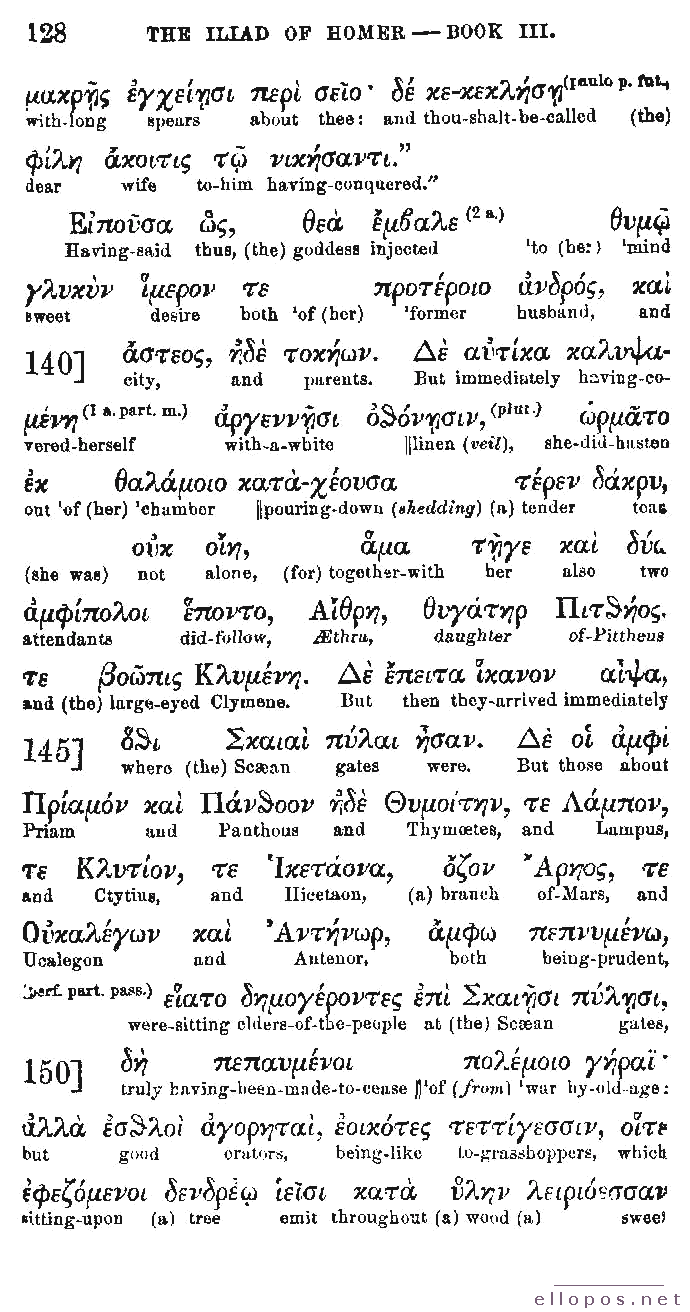 128 THE ILIAD OF HOMER — BOOK III.
μακρῇς ἐγχείῃσι περὶ σεῖο· δέ κε-κεκλήσῃ (1 paulo p. fut.,
with-long spears about thee: and thou-shalt-be-called (the)
φίλη ἄκοιτις τῷ νικήσαντι."
dear wife to-him having-conquered."
Εἰποῦσα ὣς, θεὰ ἔμβαλε (2 a.) θυμῷ
Having-said thus, (the) goddess injected 'to (her) 'mind
γλυκὺν ἵμερον τε προτέροιο ἀνδρός, καὶ
sweet desire both 'of (her) 'former husband, and
140] ἄστεος, ἠδὲ τοκήων. Δὲ αὐτίκα καλυψα-
city, and parents. But immediately having-co-
μένη (1 a. part. m.) ἀργεννῇσι ὀθόνῃσιν, (plur.) ὡρμᾶτο
vered-herself with-a-white ||linen (veil), she-did-hasten
ἐκ θαλάμοιο κατὰ-χέουσα τέρεν δάκρυ,
out 'of (her) 'chamber ||pouring-down (shedding) (a) tender tear
οὐκ οἴη, ἅμα τῇγε καὶ δύω
(she was) not alone, (for) together-with her also two
ἀμφίπολοι ἕποντο, Αἴθρη, θυγάτηρ Πιτθῆος,
attendants did-follow, Æthra, daughter of-Pittheus
τε βοῶπις Κλυμένη. Δὲ ἔπειτα ἵκανον αἶψα,
and (the) large-eyed Clymene. But then they-arrived immediately
145] ὅθι Σκαιαὶ πύλαι ἦσαν. Δὲ οἱ ἀμφὶ
where (the) Scæan gates were. But those about
Πρίαμόν καὶ Πάνθοον ἠδὲ Θυμοίτην, τε Λάμπον,
Priam and Panthous and Thymœtes, and Lampus,
τε Κλυτίον, τε Ἱκετάονα, ὄζον Ἄρηος, τε
and Ctytius, and Hicetaon, (a) branch of-Mars, and
Οὐκαλέγων καὶ Ἀντήνωρ, ἄμφω πεπνυμένω,
Ucalegon and Antenor, both being-prudent,
(perf. part. pass.) εἵατο δημογέροντες ἐπὶ Σκαιῇσι πύλῃσι,
were-sitting elders-of-the-people at (the) Scæan gates,
150] δὴ πεπαυμένοι πολέμοιο γήραϊ·
truly having-been-made-to-cease ||'of (from) 'war by-old-age:
ἀλλὰ ἐσθλοὶ ἀγορηταὶ, ἐοικότες τεττίγεσσιν, οἵτε
but good orators, being-like to-grasshoppers, which
ἐφεζόμενοι δενδρέῳ ἱεῖσι κατὰ ὕλην λειριόεσσαν
sitting-upon (a) tree emit throughout (a) wood (a) sweet
ellopos.net